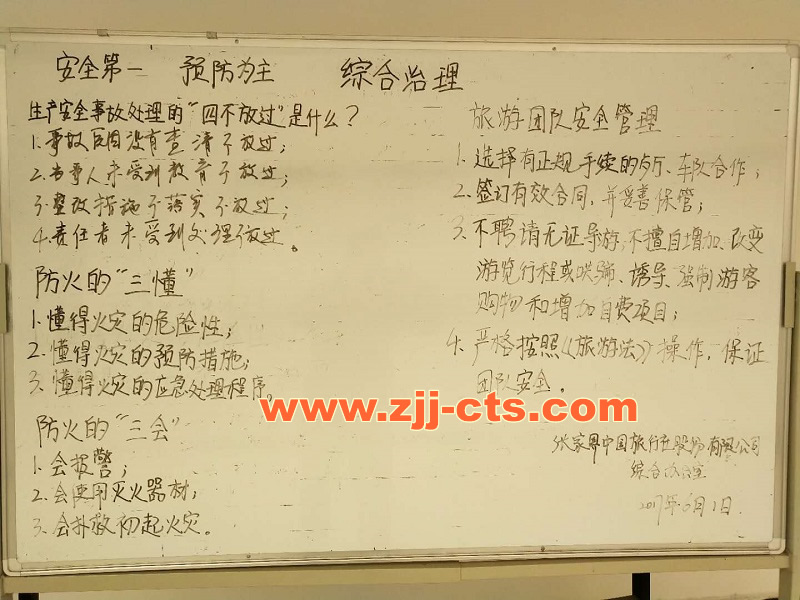 安全第一 预防为主 综合治理
生产安全事故处理的“四不放过”是什么？
1.事故原因没有查清不放过；
2.当事人未受到教育不放过；
3.整改措施不落实不放过；
4.责任者未受到处理不放过。
防火的“三懂”
1.懂得火灾的危险性；
2.懂得火灾的预防措施；
3.懂得火灾的应急处理程序。
防火的“三会”
1.会报警；
2.会使用灭火器材；
3.会扑救初起火灾。
旅游团队安全管理
1.选择有正规手续的 、车队合作；
2.签订有效合同，并妥善保管；
3.不聘请无证导游，不擅自增加、改变
游览行程或哄骗、诱导、强制游客
购物和增加自费项目；
4.严格按照《旅游法》操作，保证
团队安全。
www.zjj-cts.com
张家界中国旅行社股份有限公司
综合办公室
2017年6月1日